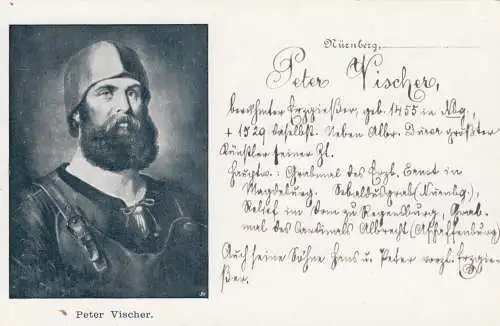 Nürnberg,
Peter Vischer,
berühmter Erzgießer, geb. 1455 in Nbg,
+ 1529 daselbst. Neben Albr. Dürer größter
Künstler seiner Zt.
Hauptw.: Grabmal des Erzb. Ernst in
Magdeburg. Sebaldusgrab (Nuenbg.),
Relief im Dom zu Regensburg, Grab-
mal des Cardinals Albrecht (Aschaffenburg)
Auch seine Söhne Hans u. Peter vorzl. Erzgie-
ßer.
Peter Vischer.